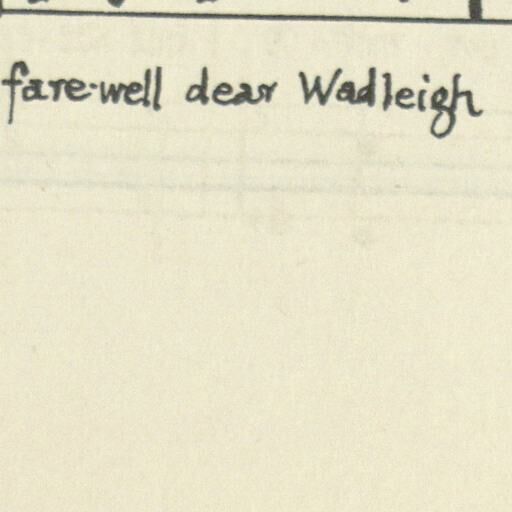 fare-well dear Wadleigh